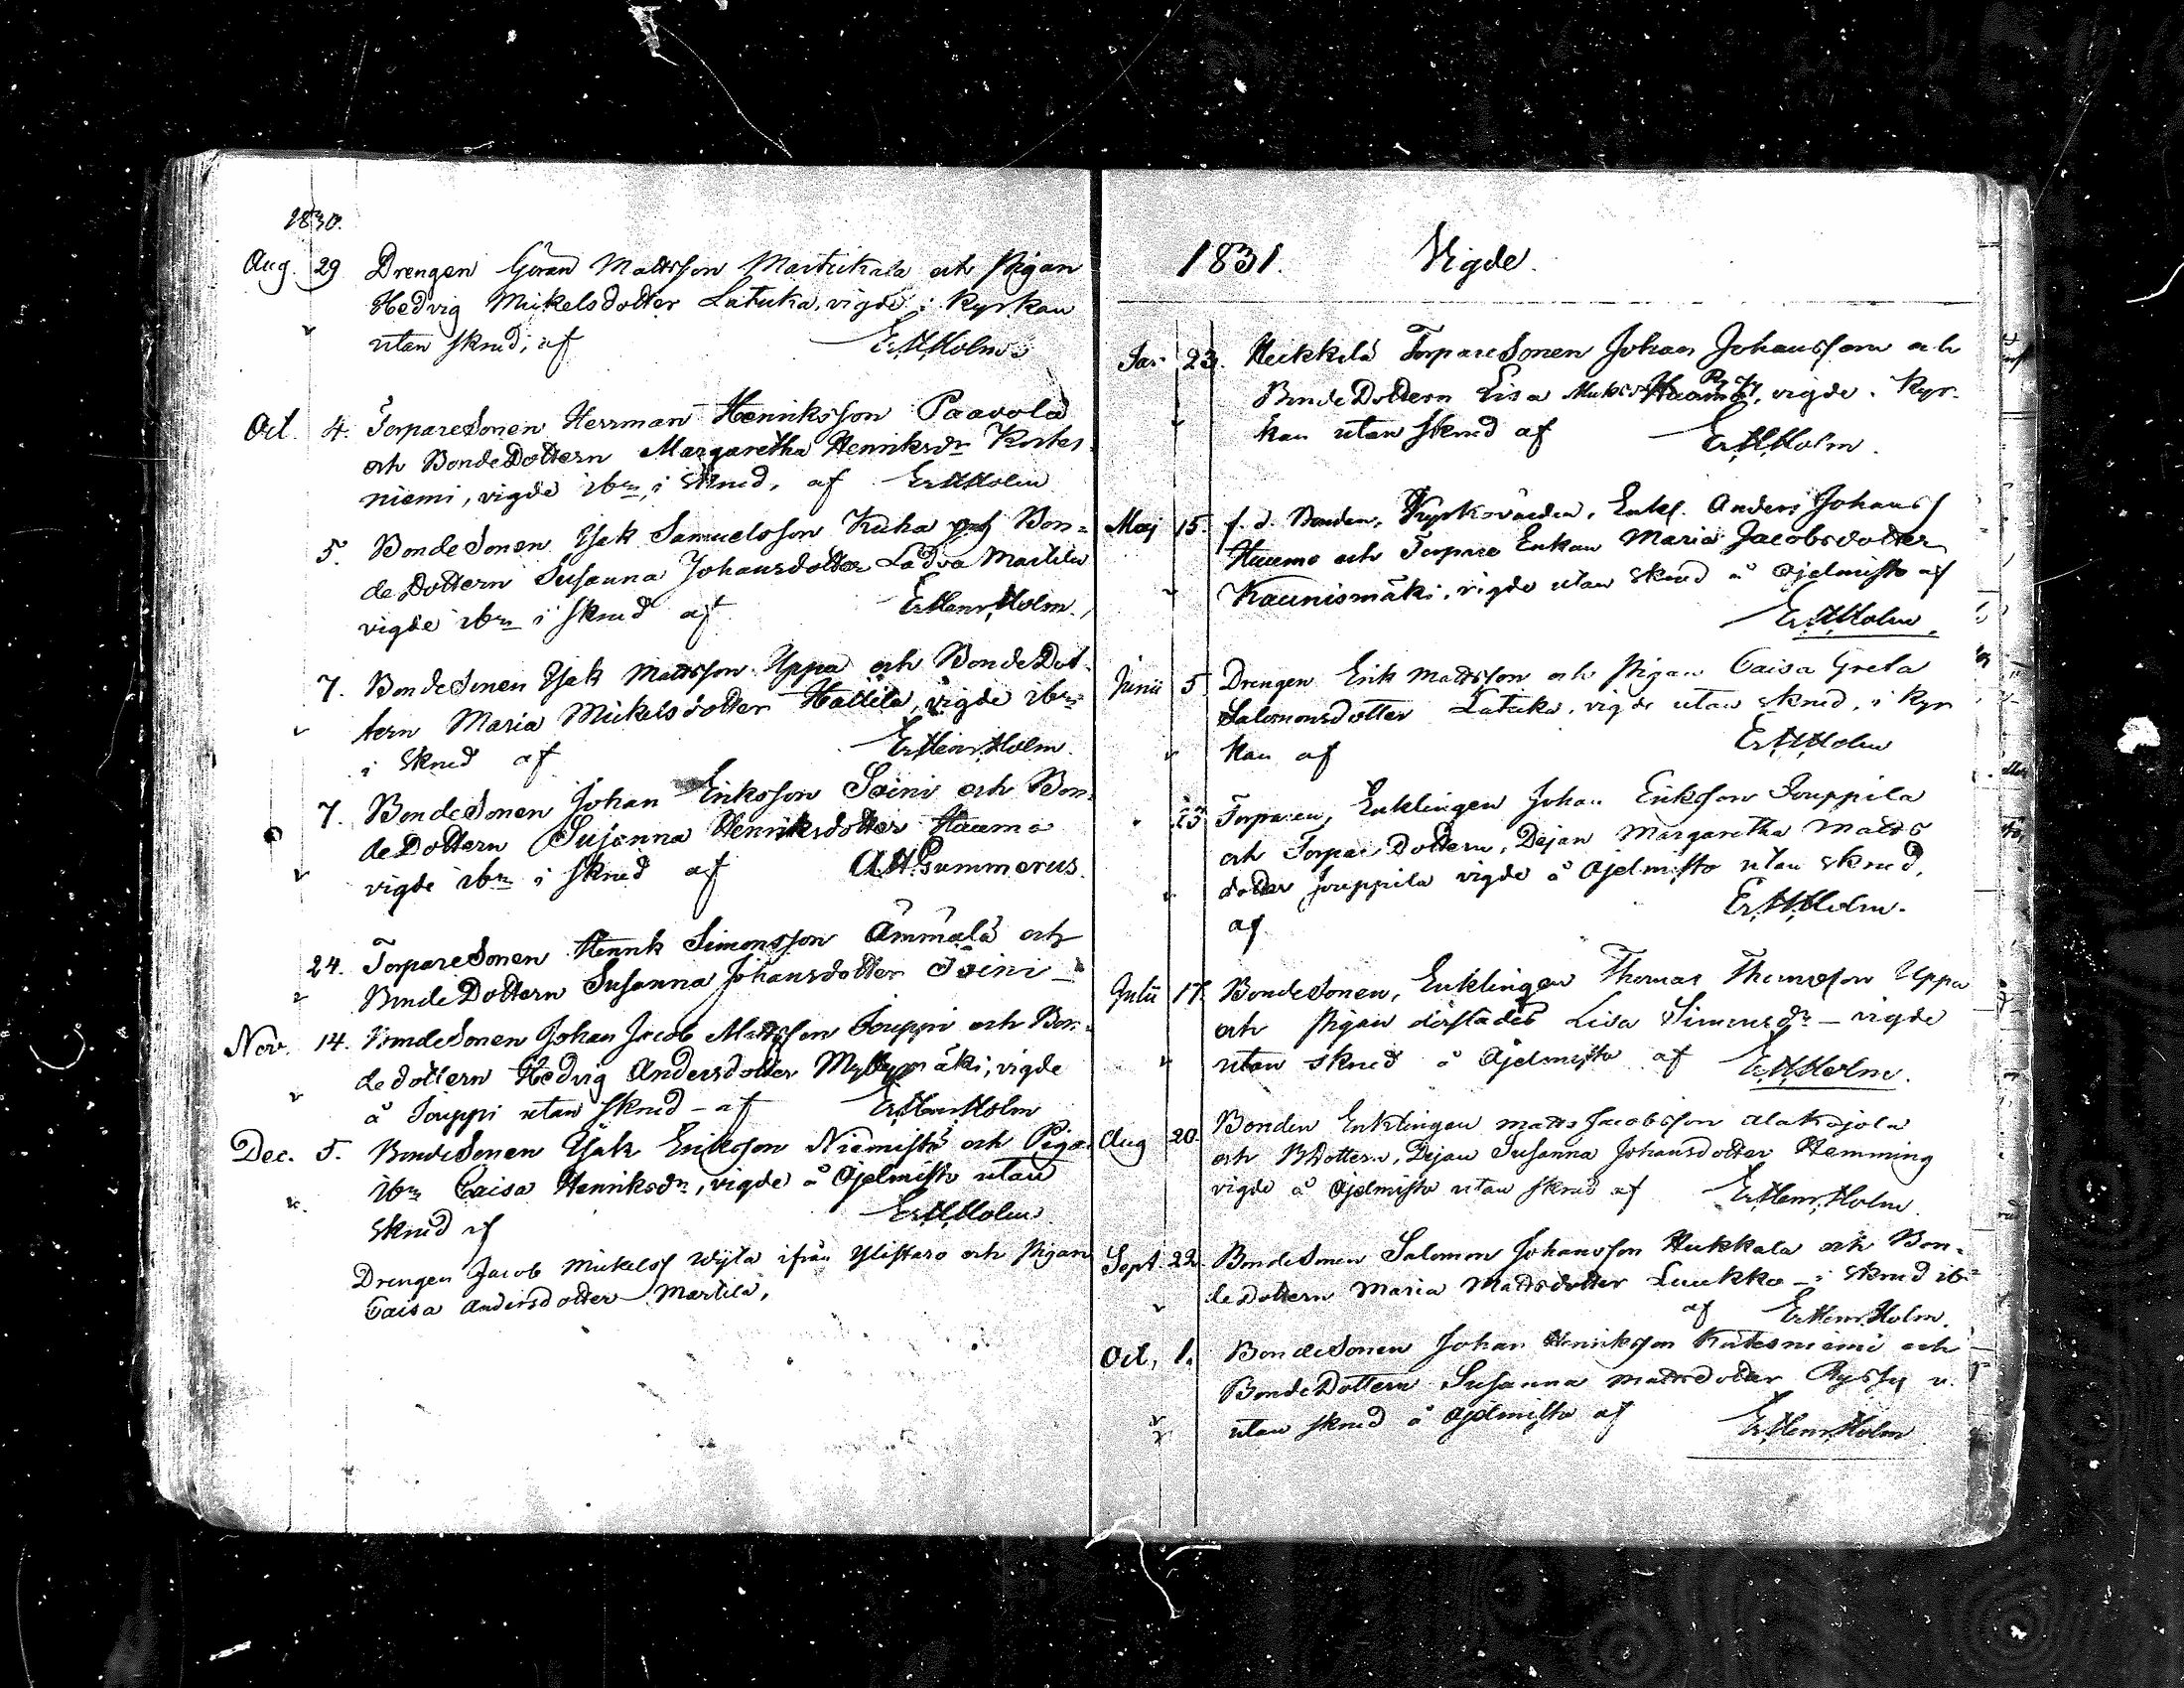 1830.
Aug. 29 Drengen Göran Mattsson Martikala och Pigan
Hedvig Mickelsdotter Latuka, vigde i Kyrkan
utan skrud, af Er. H. Holm
Oct. 4. TorpareSonen Herrman Henriksson Paavola
och BondeDottern Margaretha Henriksdr Kortes
niemi, vigde ibm i skrud, af Er. H. Holm
5. BondeSonen Isak Samuelsson Kuha och Bon=
deDottern Susanna Johansdotter Ladva Martila
vigde ibm i skrud af Er. Henr. Holm.
7. BondeSonen Isak Mattsson Uppa och BondeDot
tern Maria Mickelsdotter Hallila, vigde ibm
i skrud af Er. Henr. Holm.
7. BondeSonen Johan Eriksson Soini och Bon-
deDottern Susanna Henriksdotter Hauma
vigde ibm i skrud af A. H. Gummerus.
24. TorpareSonen Henrik Simonsson Ämmälä och
BondeDottern Susanna Johansdotter Soini
Nov. 14. BondeSonen Johan Jacob Mattsson Jouppi och Bon-
dedottern Hedvig Andersdotter Myllymäki, vigde
å Jouppi utan skrud - af Er. Henr. Holm
Dec. 5. BondeSonen Isak Ericsson Niemistö och Piga
ibm Caisa Henriksdr, vigde å Ojelmisto utan
skrud af Er. H. Holm
Drengen Jacob Mickelss ifrån Ylistaro och Pigan
Caisa Andersdotter Martila,
1831. Vigde.
Jan 23. Heikkilä TorpareSonen Johan Johansson och
BondeDottern Lisa vigde i Kyr-
kan utan skrud af Er. H. Holm.
Maj 15. f. d. Bonden, Kyrkovärden, Enkl. Anders Johanss
Haumo och Torpare Enkan Maria Jacobsdotter
Kaunismäki, vigde utan skrud å Ojelmisto af
Er. H. Holm.
Junii 5 Drengen Erik Mattsson och Pigan Caisa Greta
Salomonsdotter Latuka, vigde utan skrud, i Kyr
kan af Er. H. Holm
Torparen, Enklingen Johan Ericsson Jouppila
och Torpare Dottern, Dejan Margaretha Matts
dotter Jouppila vigde å Ojelmisto utan skrud,
af Er. H. Holm.
Julii 17. BondeSonen, Enklingen Thomas Thomasson Uppa
och Pigan derstädes Lisa Simonsdr - vigde
utan skrud å Ojelmisto af Er. H. Holm.
Aug 20. Bonden Enklingen Matts Jacobsson Alakojola
och BDottern, Dejan Susanna Johansdotter Hemming
vigde å Ojelmisto utan skrud af Er. Henr. Holm.
Sept. 22. BondeSonen Salomon Johansson Hukkala och Bon-
deDottern Maria Mattsdotter Luukko - i skrud ibm
af Er. Henr. Holm.
Oct. 1. BondeSonen Johan Henriksson Kortesniemi och
BondeDottern Susanna Mattsdotter Ryssy v.
utan skrud å Ojelmisto af Er. Henr. Holm